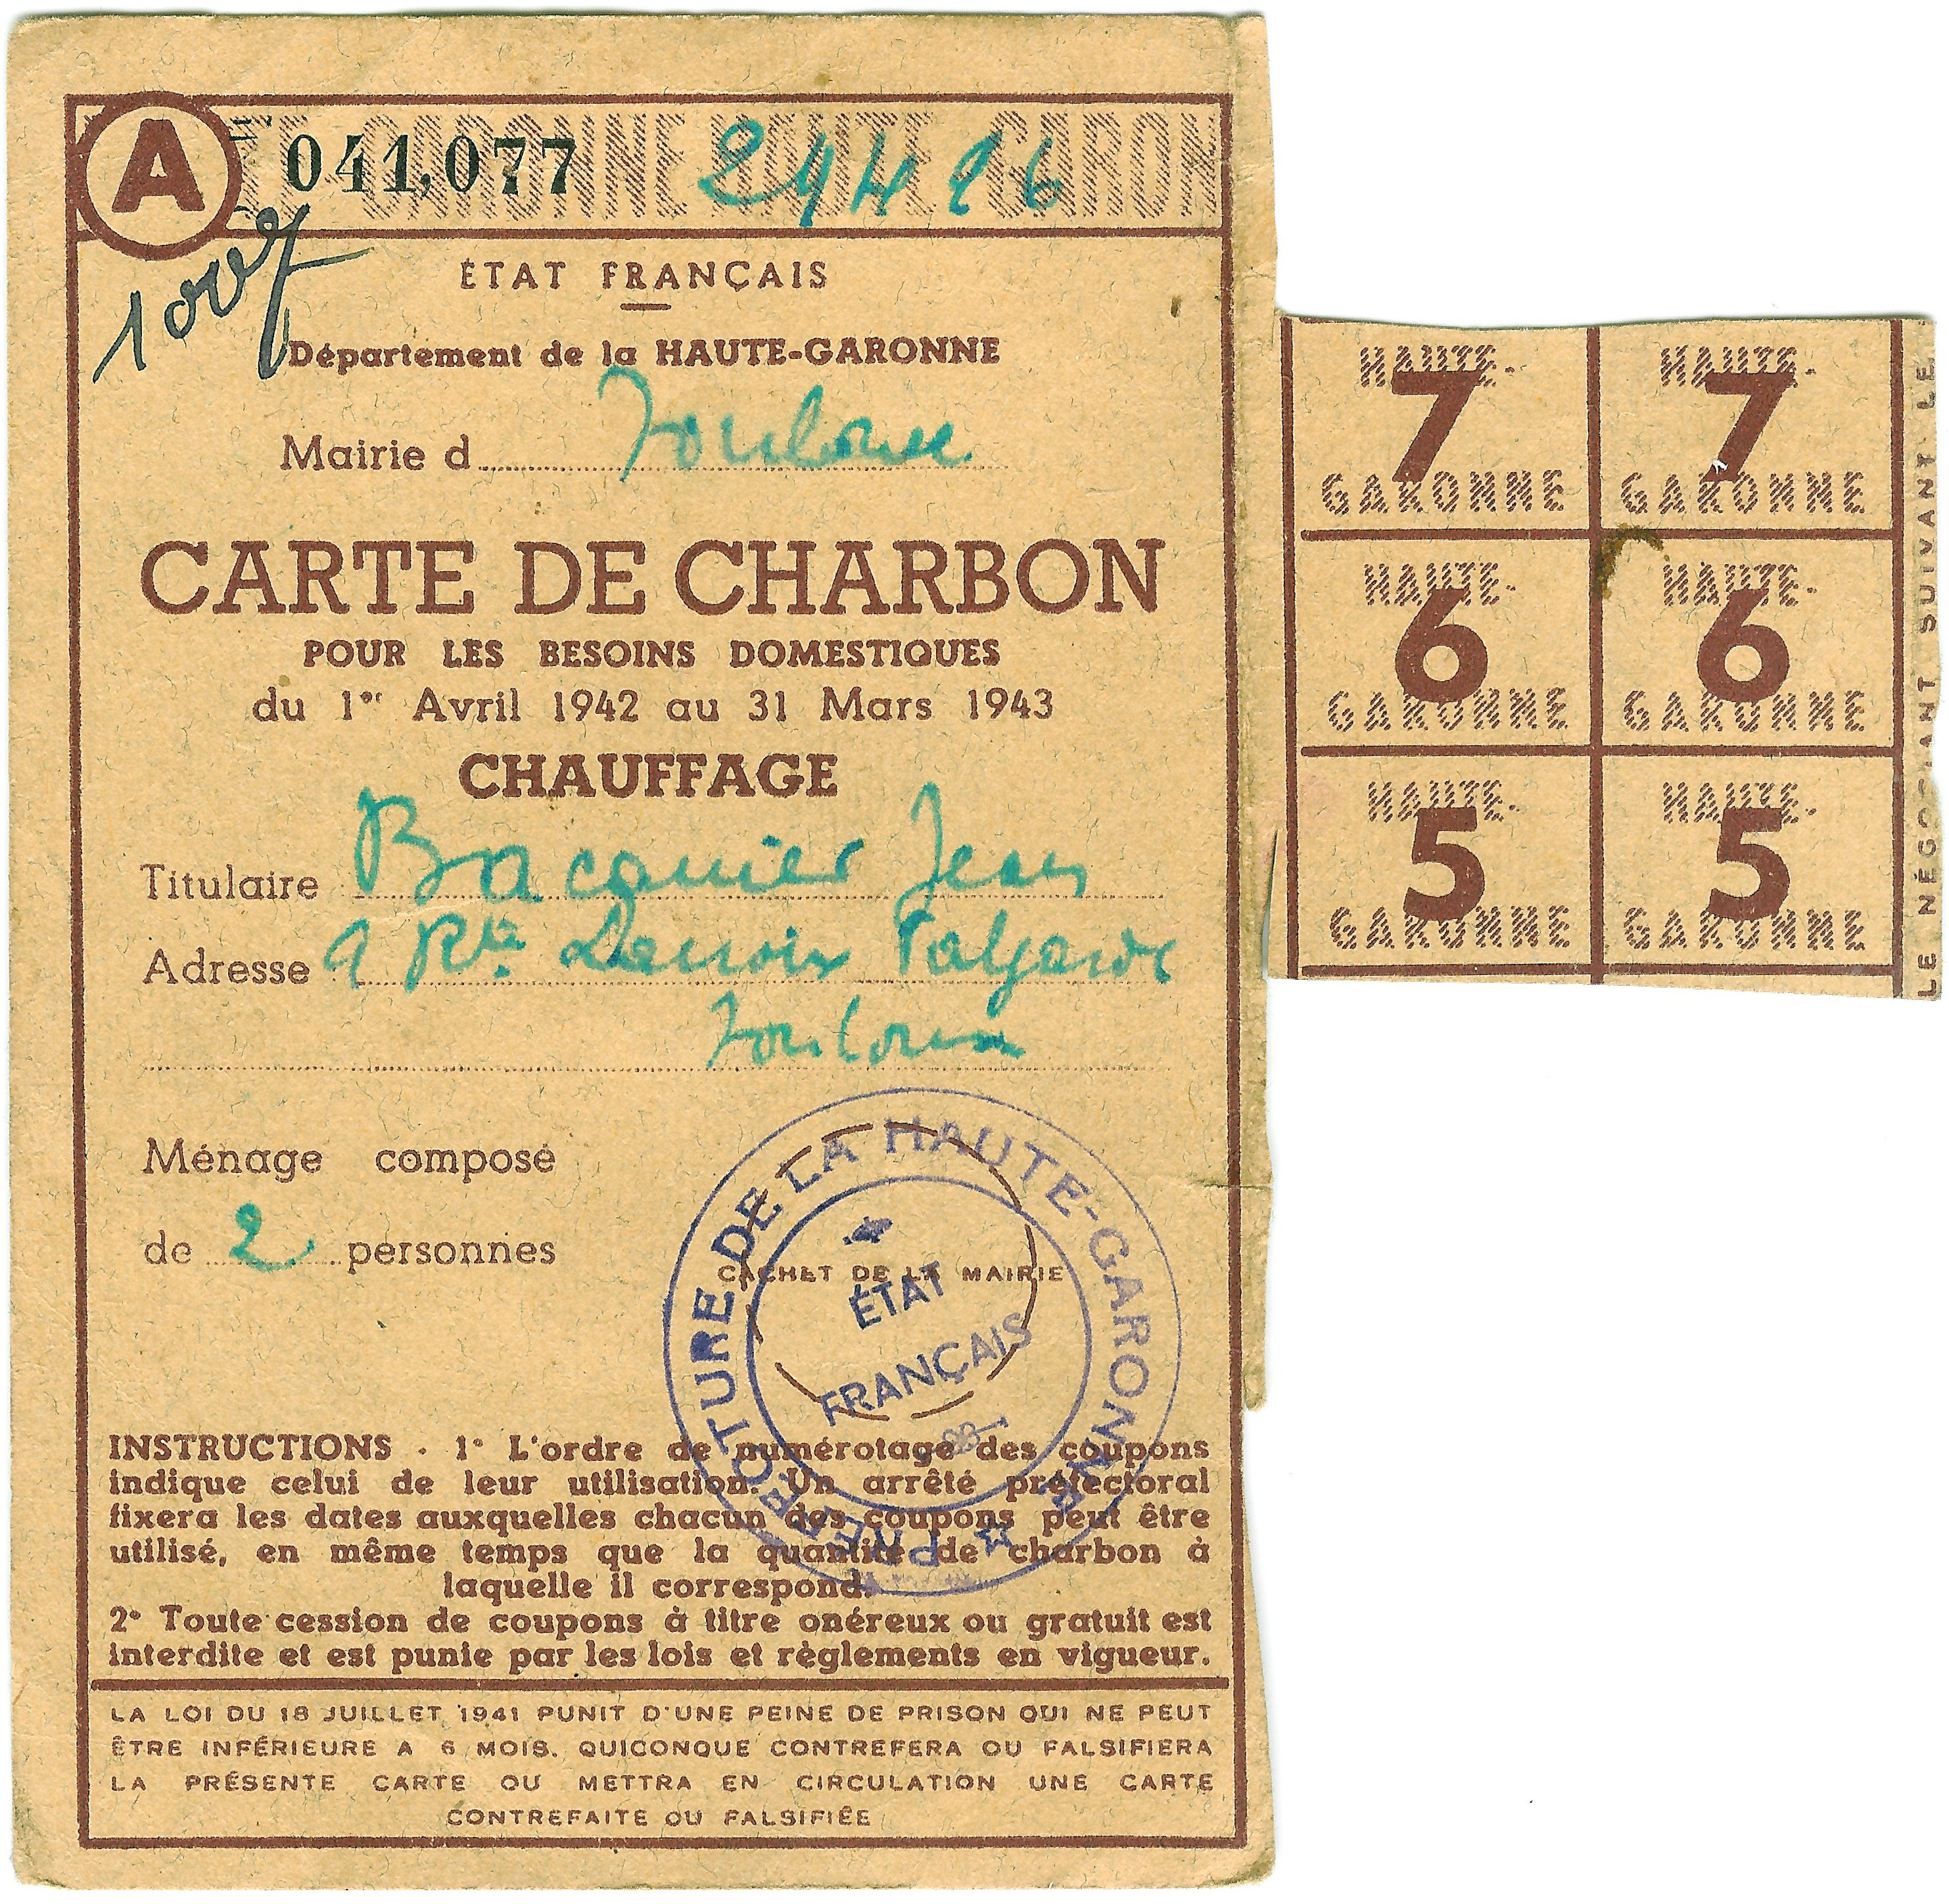 A
041,077
ÉTAT FRANÇAIS
Département de la HAUTE-GARONNE
Mairie d Toulouse
CARTE DE CHARBON
POUR LES BESOINS DOMESTIQUES
du 1er Avril 1942 au 31 Mars 1943
CHAUFFAGE
Titulaire Bacquier Jean
Adresse 9 Rte Lacroix Falgarde
Toulouse
Ménage composé
de 2 personnes
CACHET DE LA MAIRIE
PRÉFECTURE DE LA HAUTE-GARONNE
ÉTAT
FRANÇAIS
INSTRUCTIONS . 1° L'ordre de numérotage des coupons
indique celui de leur utilisation. Un arrêté préfectoral
fixera les dates auxquelles chacun des coupons peut être
utilisé, en même temps que la quantité de charbon à
laquelle il correspond.
2° Toute cession de coupons à titre onéreux ou gratuit est
interdite et est punie par les lois et règlements en vigueur.
LA LOI DU 18 JUILLET 1941 PUNIT D'UNE PEINE DE PRISON QUI NE PEUT
ÊTRE INFÉRIEURE A 6 MOIS. QUICONQUE CONTREFERA OU FALSIFIERA
LA PRÉSENTE CARTE OU METTRA EN CIRCULATION UNE CARTE
CONTREFAITE OU FALSIFIÉE
HAUTE- HAUTE-
7 7
GARONNE GARONNE
HAUTE- HAUTE-
6 6
GARONNE GARONNE
HAUTE- HAUTE-
5 5
GARONNE GARONNE
LE NÉGOCIANT SUIVANT LE